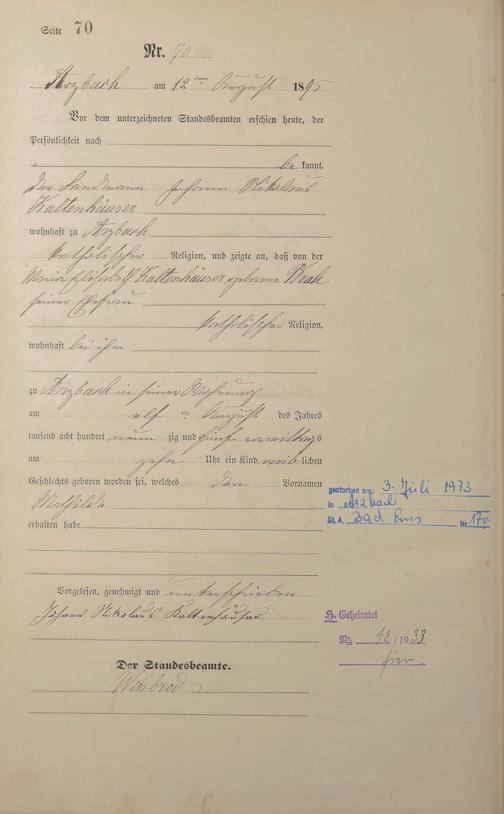 Seite 70
Nr. 70
Arzbach am 12ten August 1895
Vor dem unterzeichneten Standesbeamten erschien heute, der
Persönlichkeit nach
bekannt,
der Landmann Johann Nikolaus
Kaltenhäuser
wohnhaft zu Arzbach
katholischer Religion, und zeigte an, daß von der
Maria Elisabeth Kaltenhäuser geborene
seiner Ehefrau
katholischer Religion,
wohnhaft bei ihm
zu Arzbach in seiner Wohnung
am elf ten August des Jahres
tausend acht hundert neun zig und fünf vormittags
um zehn Uhr ein Kind weiblichen
Geschlechts geboren worden sei, welches den Vornamen
Mathilde
erhalten habe
Vorgelesen, genehmigt und unterschrieben
Johann Nikolaus Kaltenhäuser
Der Standesbeamte.
Weisbrod
gestorben am 3. Juli 1973
in Arzbach
St. A. Bad Ems Nr. 170
H. Geheiratet
Nr. 12/1933
hier